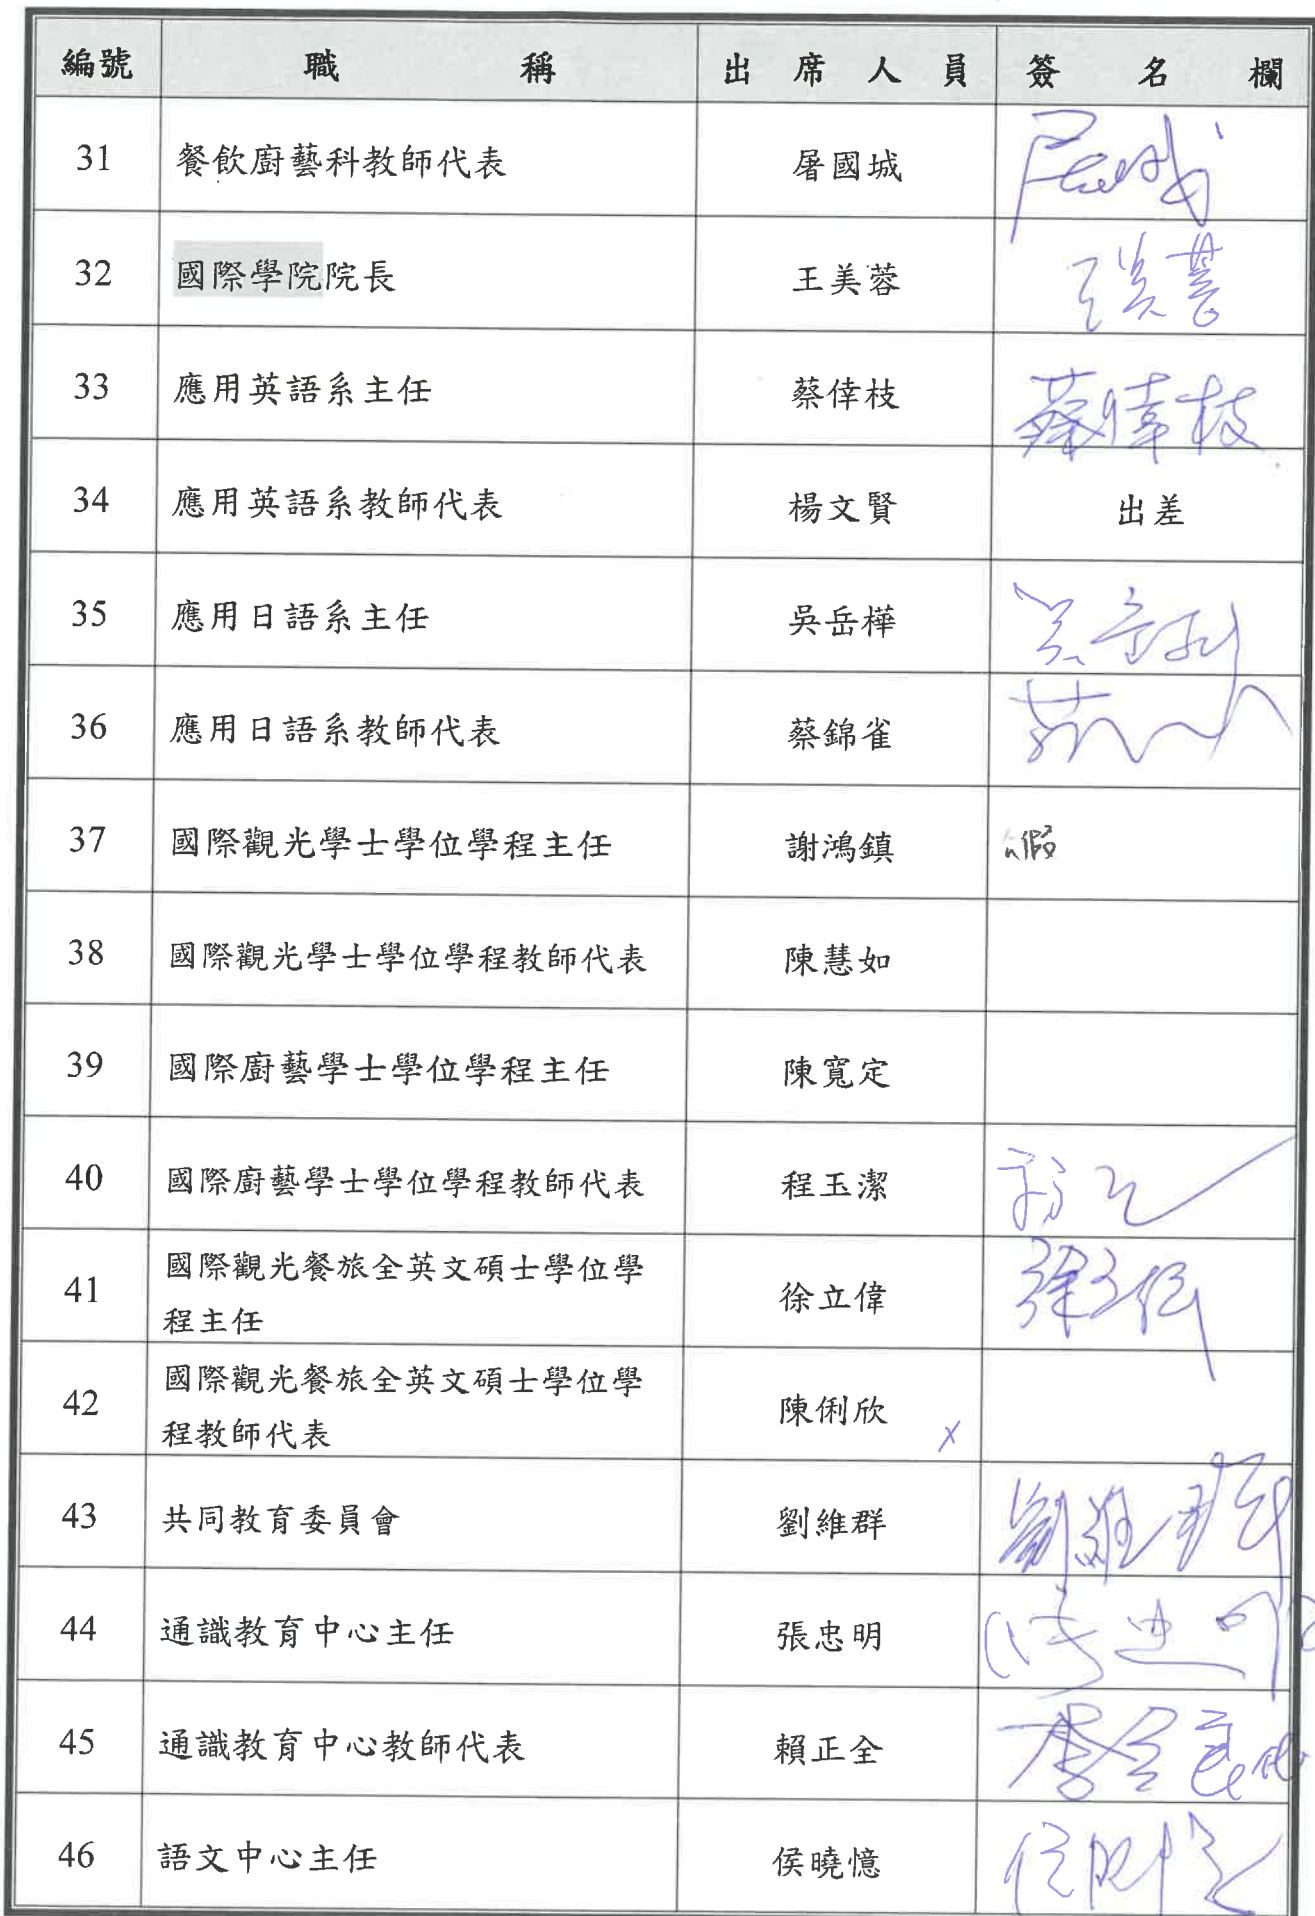 編號 職稱 出席人員 簽名欄
31 餐飲廚藝科教師代表 屠國城
32 國際學院院長 王美蓉 王美蓉
33 應用英語系主任 蔡倖枝 蔡倖枝
34 應用英語系教師代表 楊文賢 出差
35 應用日語系主任 吳岳樺
36 應用日語系教師代表 蔡錦雀
37 國際觀光學士學位學程主任 謝鴻鎮 假
38 國際觀光學士學位學程教師代表 陳慧如
39 國際廚藝學士學位學程主任 陳寬定
40 國際廚藝學士學位學程教師代表 程玉潔
41 國際觀光餐旅全英文碩士學位學
程主任 徐立偉 徐立偉
42 國際觀光餐旅全英文碩士學位學
程教師代表 陳俐欣 x
43 共同教育委員會 劉維群 劉維群
44 通識教育中心主任 張忠明 張忠明
45 通識教育中心教師代表 賴正全
46 語文中心主任 侯曉憶